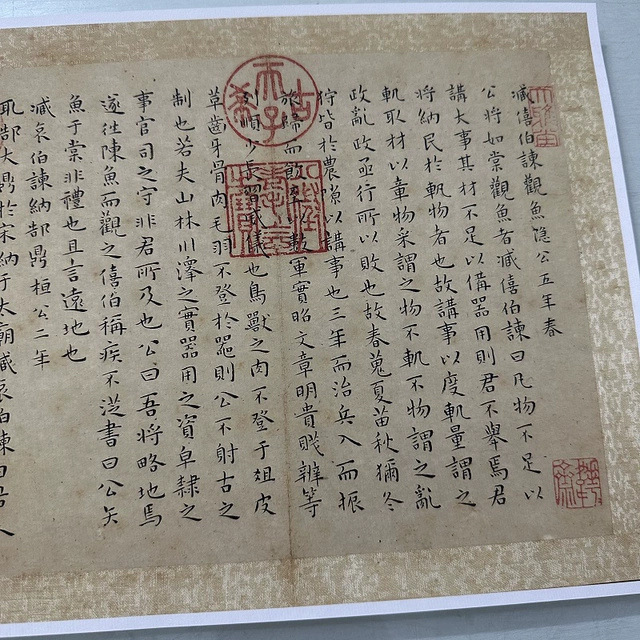 臧僖伯諫觀魚隐公五年春
公將如棠觀魚者臧僖伯諫曰凡物不足以
講大事其材不足以備器用則君不舉焉君
將納民於軌物者也故講事以度軌量謂之
軌取材以章物采謂之物不軌不物謂之亂
政亂政亟行所以敗也故春蒐夏苗秋獮冬
狩皆於農隙以講事也三年而治兵入而振
旅歸而飲至以數軍實昭文章明貴賤辨等
列順少長習威儀也鳥獸之肉不登于俎皮
革齒牙骨肉毛羽不登於器則公不射古之
制也若夫山林川澤之實器用之資皁隸之
事官司之守非君所及也公曰吾將略地焉
遂往陳魚而觀之僖伯稱疾不從書曰公矢
魚于棠非禮也且言遠地也
臧哀伯諫納郜鼎桓公二年
取郜大鼎於宋納于太廟臧哀伯諫曰君人
古希天子